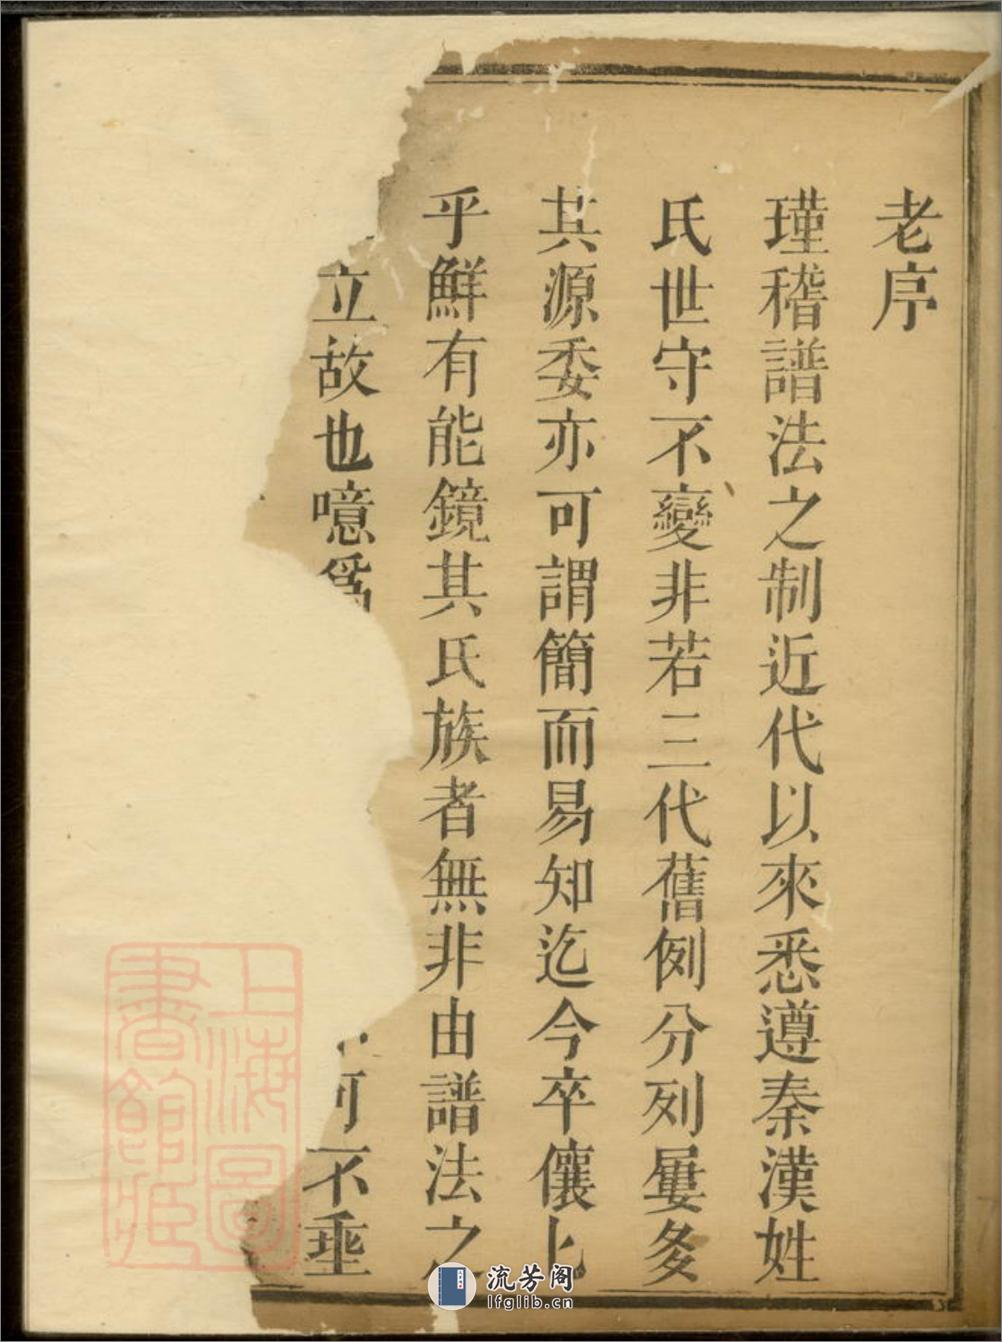 老序
瑾稽譜法之制近代以來悉遵秦漢姓
氏世守不變非若三代舊例分列屢多
其源委亦可謂簡而易知迄今卒儴
乎鮮有能鏡其氏族者無非由譜法之
立故也噫爲
可不埀
上海圖書館藏
流芳阁
lfglib.cn